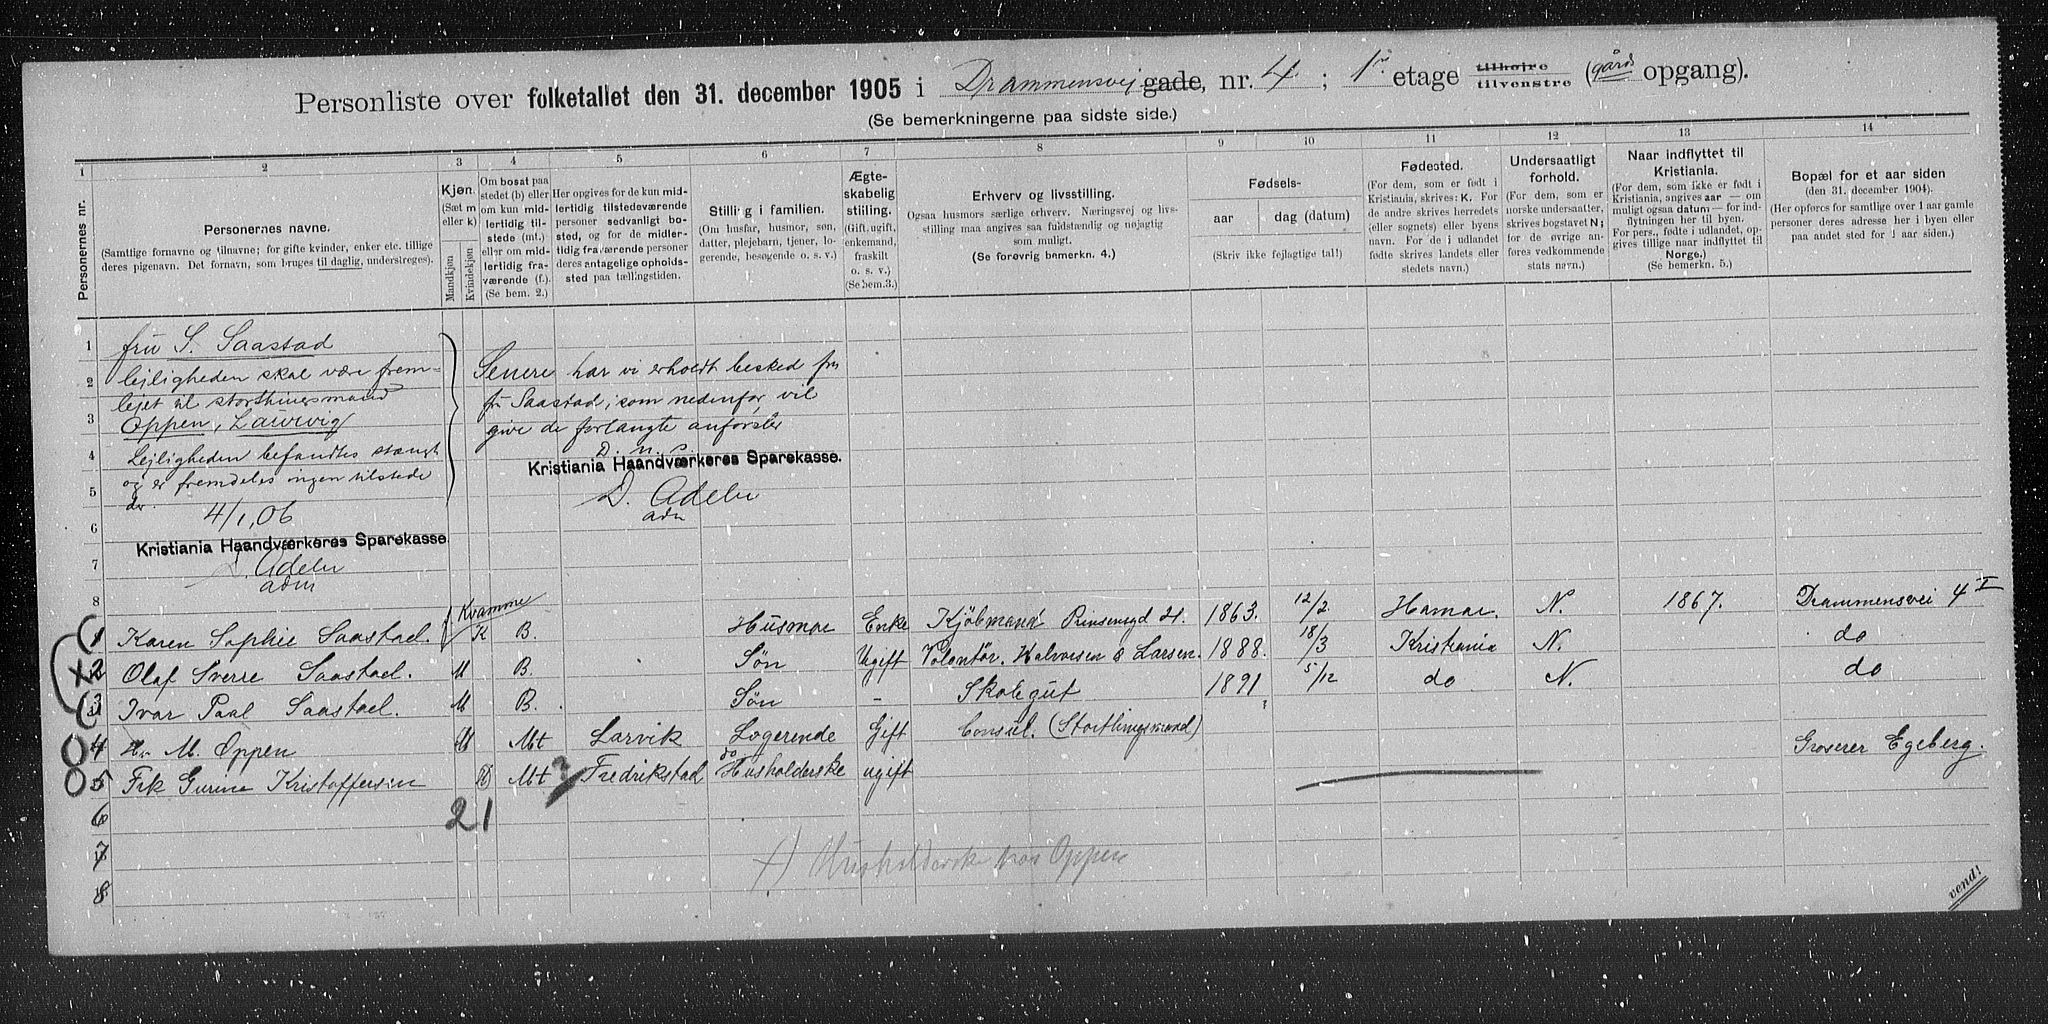 Personliste over folketallet den 31. december 1905 i Drammensvej gade, nr. 4 ; 1ste etage tilhøire tilvenstre (gårds opgang).
(Se bemerkningerne paa sidste side.)
1 2 3 4 5 6 7 8 9 10 11 12 13 14
Personernes nr.
Personernes navne.
(Samtlige fornavne og tilnavne; for gifte kvinder, enker etc. tillige
deres pigenavn. Det fornavn, som bruges til daglig, understreges).
Kjøn.
(Sæt m
eller k)
Mandkjøn
Kvindekjøn
Om bosat paa
stedet (b) eller
om kun mid-
lertidig til-
stede (mt.)
eller om mid-
lertidig fra-
værende (f.).
(Se bem. 2.)
Her opgives for de kun mid-
lertidig tilstedeværende
personer sedvanligt bo-
sted, og for de midler-
tidig fraværende personer
deres antagelige opholds-
sted paa tællingstiden.
Stilling i familien.
(Om husfar, husmor, søn,
datter, plejebarn, tjener, lo-
gerende, besøgende o. s. v.)
Ægte-
skabelig
stilling.
(Gift, ugift,
enkemand,
fraskilt
o. s. v.)
(Se bem.3.)
Erhverv og livsstilling.
Ogsaa husmors særlige erhverv. Næringsvej og livs-
stilling maa angives saa fuldstændig og nøjagtig
som muligt.
(Se forøvrig bemerkn. 4.)
Fødsels-
aar dag (datum)
(Skriv ikke fejlagtige tal!)
Fødested.
(For dem, som er født i
Kristiania, skrives: K. For
de andre skrives herredets
(eller sognets) eller byens
navn. For de i udlandet
fødte skrives landets eller
stedets navn.)
Undersaatligt
forhold.
(For dem, som er
norske undersaatter,
skrives bogstavet N;
for de øvrige an-
føres vedkommende
stats navn.)
Naar indflyttet til
Kristiania.
(For dem, som ikke er født i
Kristiania, angives aar — om
muligt ogsaa datum — for ind-
flytningen her til byen.
For pers., fødte i udlandet, op-
gives tillige naar indflyttet til
Norge.)
(Se bemerkn. 5.)
Bopæl for et aar siden
(den 31. december 1904).
(Her opføres for samtlige over 1 aar gamle
personer deres adresse her i byen eller
paa andet sted for 1 aar siden.)
1 fru S. Saastad
2 lejligheden skal være frem-
lejet til storthingsmand
3 Oppen, Laurvig
4 Lejligheden befandtes stængt
5 og er fremdeles ingen tilstede
der.
6 4/1, 06
Kristiania Haandværkeres Sparekasse.
7 D. Adeler
adm
8
Senere har vi erholdt besked fra
fru Saastad, som nedenfor, vil
give de forlangte anførsler
D. n. s.
Kristiania Haandværkeres Sparekasse.
D. Adeler
adm
Kvamme
1 Karen Sophie Saastad. K B. Husmor Enke Kjøbmand Prinsensgd 21. 1863. 12/2 Hamar. N. 1867. Drammensvei 4 I
2 Olaf Sverre Saastad. M B. Søn Ugift Volontør. Halvorsen & Larsen. 1888. 18/3 Kristiania N. do
3 Ivar Paal Saastad. M B. Søn - Skolegut 1891 5/12 do N. do
4 Hr. M. Oppen M Mt Larvik Logerende Gift Consul. (Stortingsmand) Groserer Egeberg.
5 Frk Gurine Kristoffersen K Mt ? Fredrikstad do Husholderske ugift
6 21
7 x) Husholderske hos Oppen
8
vend!